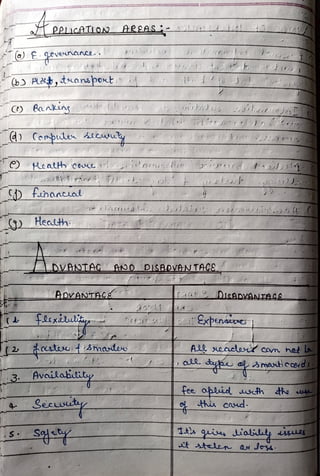 APPLICATION AREAS:-
(a) E governance.
(b) transport
(c) Banking
(d) Computer security
(e) Health care
(f) Financial
(g) Health
ADVANTAG AND DISADVANTAGE
ADVANTAGE DISADVANTAGE
1. flexibility Expensive
2. faster & smarter All readers can not
all type of smartcard.
3. Availability
fee aplied with the use
4. Security of this card.
5. Safety It's gives liability issues
it stolen or loss.